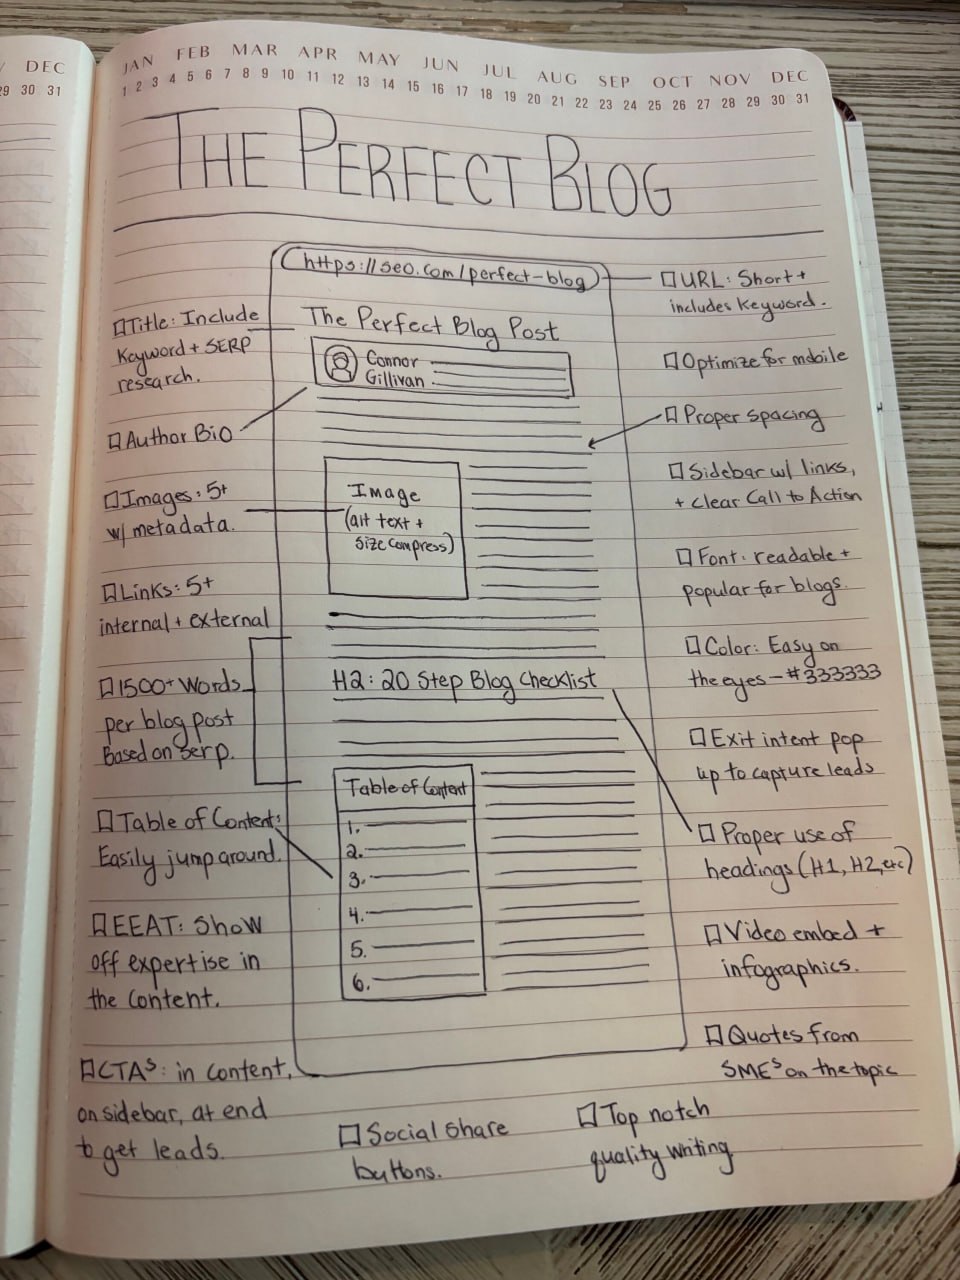 DEC
29 30 31
JAN FEB MAR APR MAY JUN JUL AUG SEP OCT NOV DEC
1 2 3 4 5 6 7 8 9 10 11 12 13 14 15 16 17 18 19 20 21 22 23 24 25 26 27 28 29 30 31
THE PERFECT BLOG
https://seo.com/perfect-blog
The Perfect Blog Post
Connor
Gillivan
Image
(alt text +
Size compress)
H2: 20 Step Blog Checklist
Table of Content
1.
2.
3.
4.
5.
6.
Title: Include
Keyword + SERP
research.
Author Bio
Images: 5+
w/ metadata.
Links: 5+
internal + external
1500+ Words
per blog post
Based on serp.
Table of Content:
Easily jump around.
EEAT: Show
off expertise in
the content.
CTAs: in content,
on sidebar, at end
to get leads.
URL: Short +
includes Keyword.
Optimize for mobile
Proper spacing
Sidebar w/ links,
+ clear Call to Action
Font: readable +
popular for blogs.
Color: Easy on
the eyes - #333333
Exit intent pop
up to capture leads
Proper use of
headings (H1, H2, etc)
Video embed +
infographics.
Quotes from
SMEs on the topic
Social Share
buttons.
Top notch
quality writing.